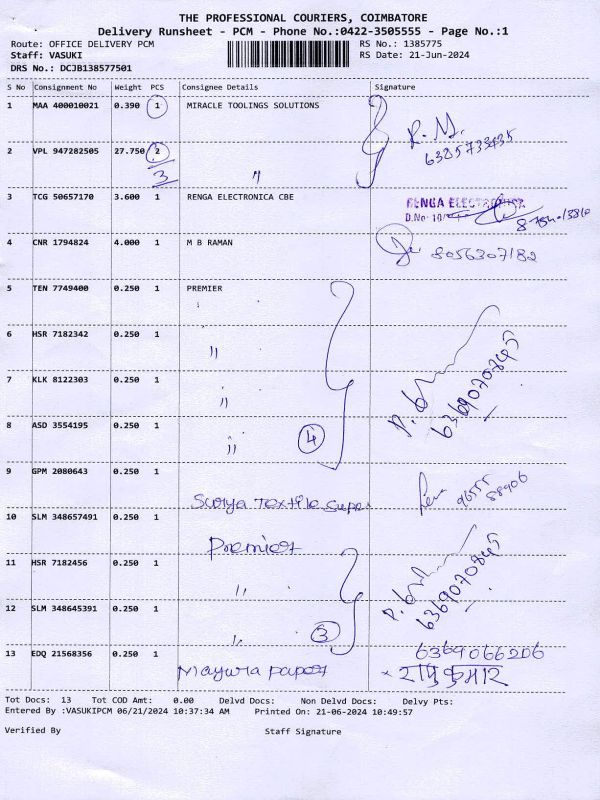 THE PROFESSIONAL COURIERS, COIMBATORE
Delivery Runsheet - PCM - Phone No.:0422-3505555 - Page No.:1
Route: OFFICE DELIVERY PCM RS No.: 1385775
Staff: VASUKI RS Date: 21-Jun-2024
DRS No.: DCJB138577501
S No Consignment No Weight PCS Consignee Details Signature
1 MAA 400010021 0.390 1 MIRACLE TOOLINGS SOLUTIONS
R.M.
6385733435
2 VPL 947282505 27.750 2 "
3
3 TCG 50657170 3.600 1 RENGA ELECTRONICA CBE
RENGA
D.No
4 CNR 1794824 4.000 1 M B RAMAN 8056307182
5 TEN 7749400 0.250 1 PREMIER
6 HSR 7182342 0.250 1 "
7 KLK 8122303 0.250 1 "
6369070845
8 ASD 3554195 0.250 1 " 4
9 GPM 2080643 0.250 1 Surya Textile Super
96555
88906
10 SLM 348657491 0.250 1 Premier
11 HSR 7182456 0.250 1 "
6369070845
12 SLM 348645391 0.250 1 " 3
13 EDQ 21568356 0.250 1 Mayura paper
6369066206
Tot Docs: 13 Tot COD Amt: 0.00 Delvd Docs: Non Delvd Docs: Delvy Pts:
Entered By :VASUKIPCM 06/21/2024 10:37:34 AM Printed On: 21-06-2024 10:49:57
Verified By Staff Signature